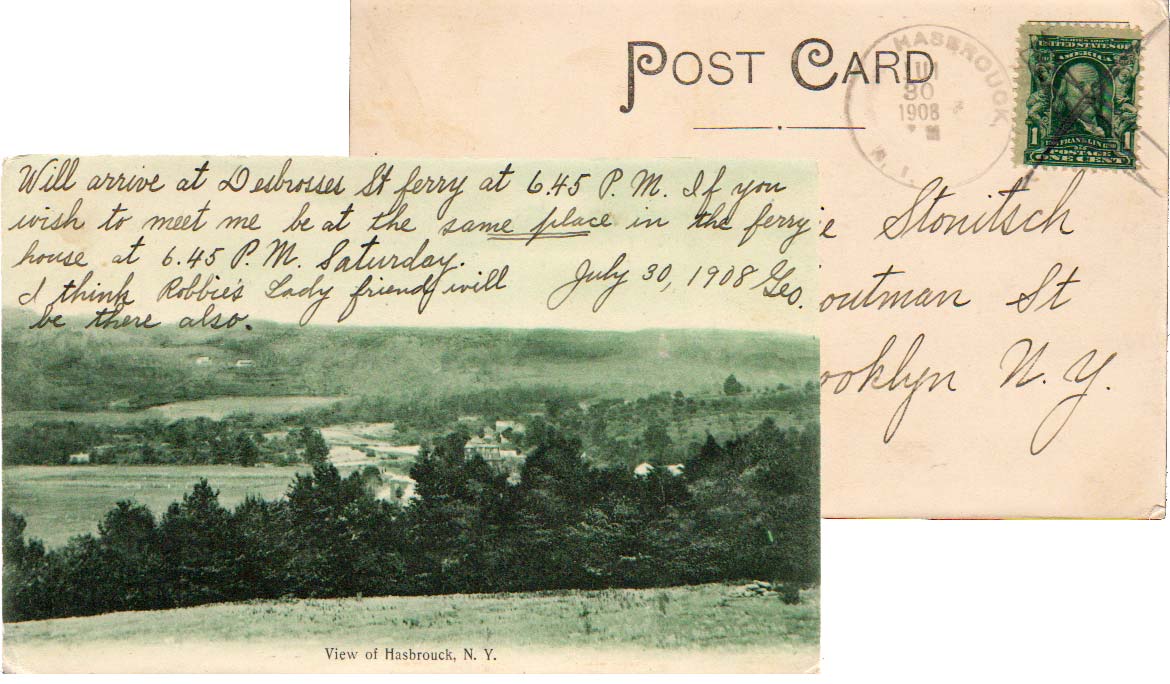 POST CARD
HASBROUCK,
30
1908
N.
SERIES 1902
UNITED STATES OF
AMERICA
1 FRANKLIN 1
POSTAGE
ONE CENT
e Stonitsch
outman St
ooklyn N. Y.
Will arrive at Desbrosses St ferry at 6.45 P. M. If you
wish to meet me be at the same place in the ferry
house at 6.45 P. M. Saturday.
I think Robbie's Lady friend will July 30, 1908 Geo.
be there also.
View of Hasbrouck, N. Y.